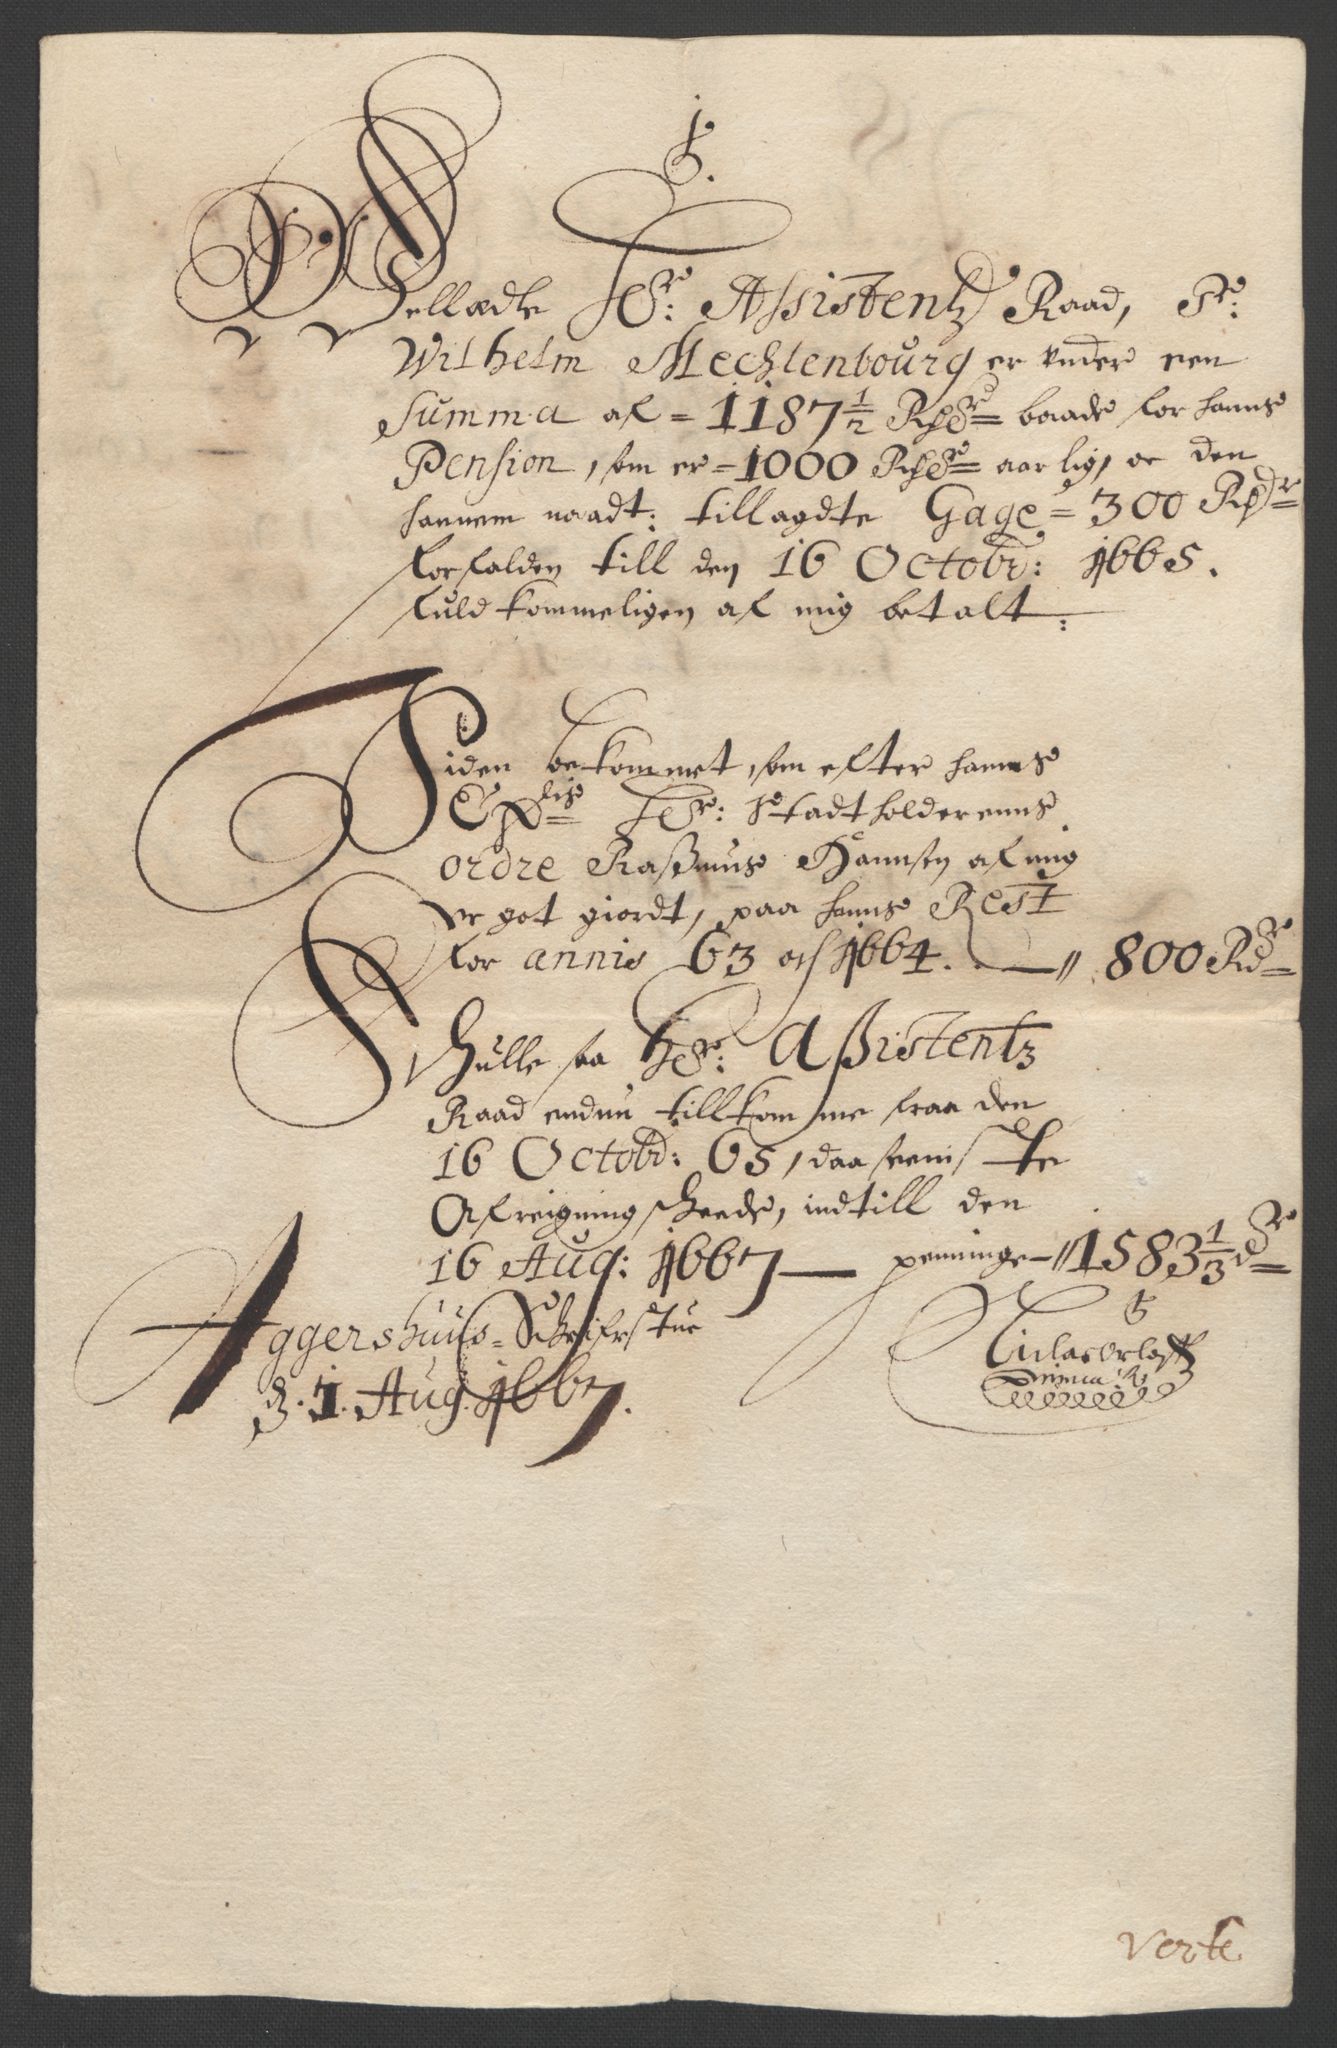 Welledle Hr: Assistentz Raad, Hr:
Wilhelm Mechlenbourg er under een
Summa af = 1187 1/2 Rixdr baade for hanns
Pension, som er = 1000 Rixdr aarlig, oc den
hannem naadt: tillagdte Gage = 300 Rixdr
forfalden till den 16 Octobr: 1665.
fuldkommeligen af mig betalt:
Siden bekommet, som efter hanns
Hr: Stadtholderenns
ordre Rasmus Hannsen af mig
er got giordt, paa hanns Rest
for annis 63 och 1664. — // 800 Rdr
Schulle saa Hr: Assistentz
Raad endnu tillkomme fraa den
16 Octobr: 65, daa seeniste
Afreigning skeede, indtill den
16 Aug: 1667 — penninge — // 1583 1/3 dr
Aggershuus Schrifstue
d. 1. Aug. 1667.
Verte